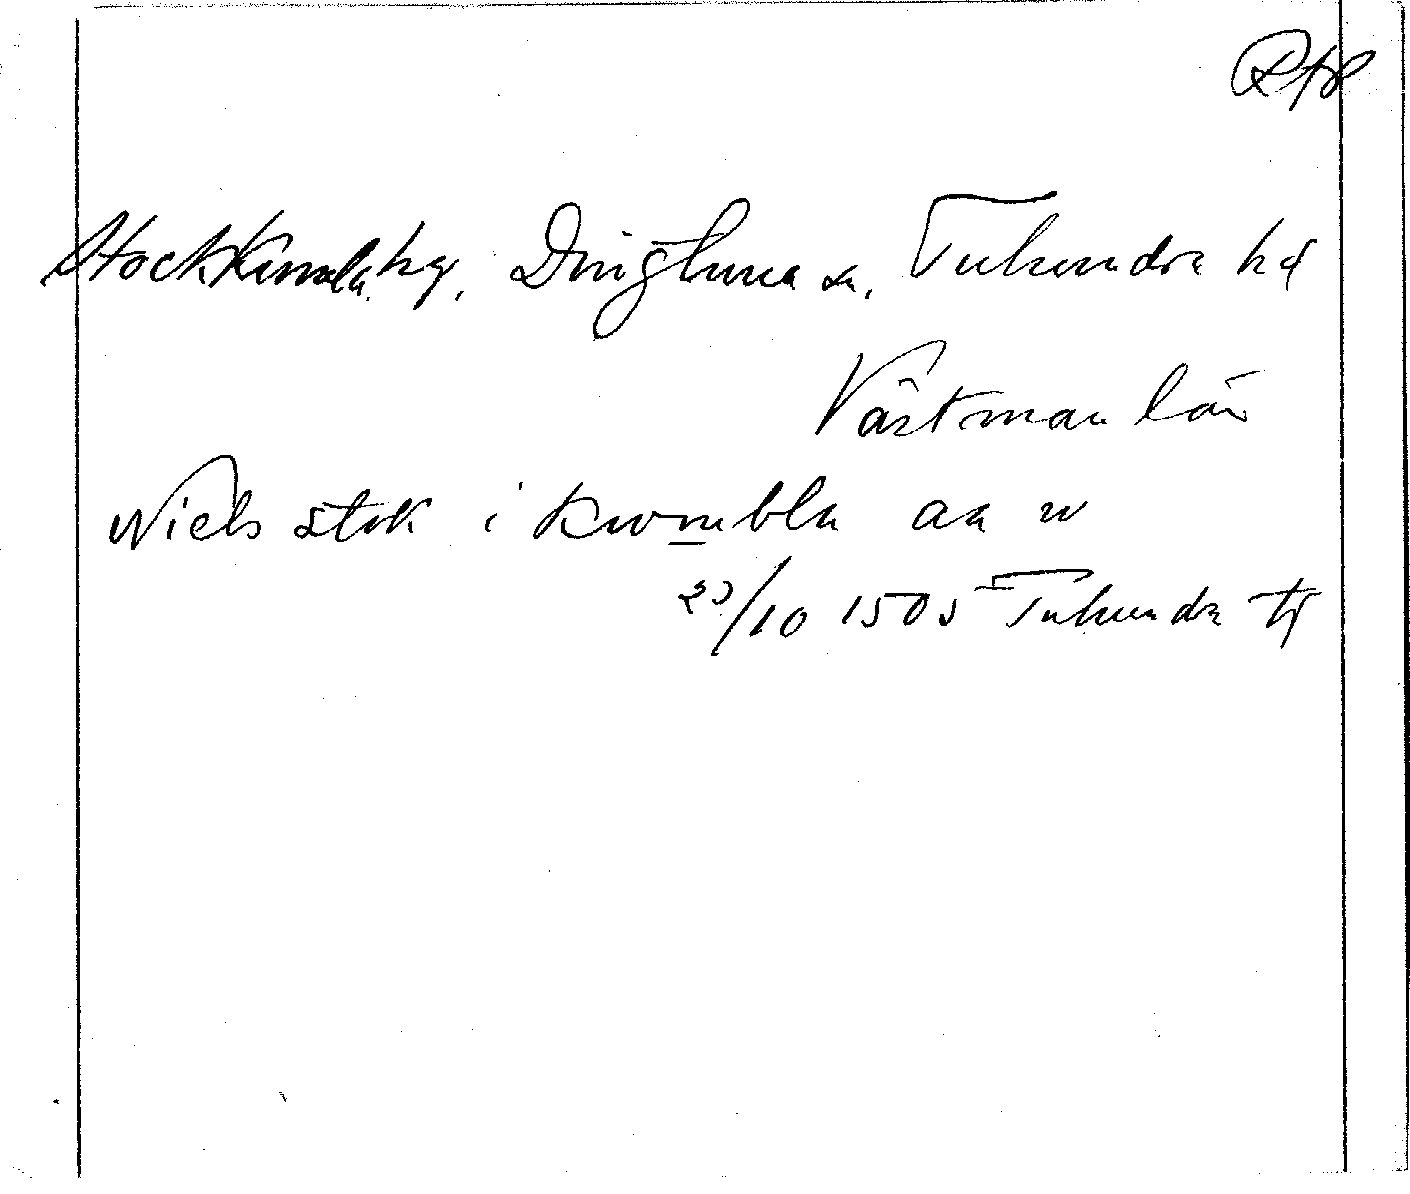 StockKumla, by, Dingtuna sn, Tuhundra hd
Västman län
Niels stok i kwmbla aa w
20/10 1505 Tuhundra tg